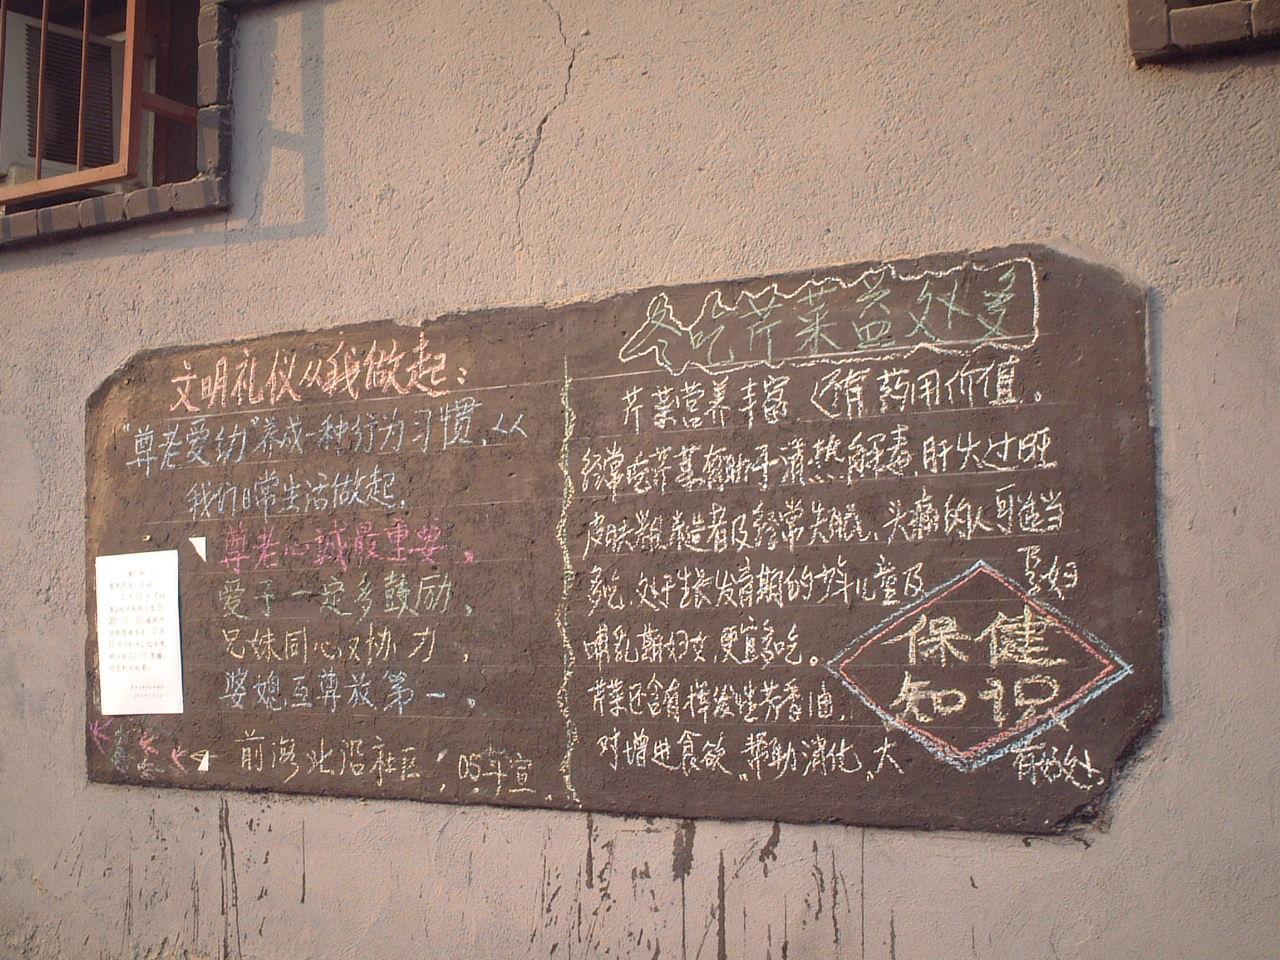 文明礼仪从我做起:
"尊老爱幼"养成一种行为习惯,从
我们日常生活做起.
尊老心誠最重要。
爱子一定多鼓励、
兄妹同心又协力.
婆媳互尊放第一、
前海北沿社区 05年宣
冬吃芹菜益处多
芹菜营养丰富 还有药用价值.
经常吃芹菜有助于清热解毒.肝火过旺
皮肤粗糙者及经常失眠、头痛的人可适当
多吃.处于生长发育期的少年儿童及
妇
哺乳期妇女,更宜多吃。
芹菜还含有挥发性芳香油.
对增进食欲、帮助消化、大
有好处
保健
知识